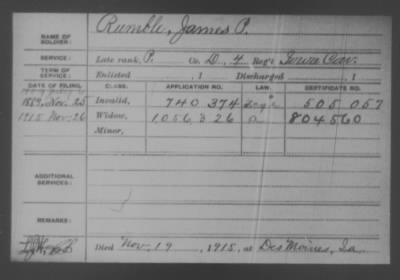 NAME OF SOLDIER: Rumble, James P.
SERVICE: Late rank, P. Co. D, 4 Reg't Iowa Cav.
TERM OF SERVICE: Enlisted , 1 Discharged , 1
DATE OF FILING. CLASS. APPLICATION NO. LAW. CERTIFICATE NO.
1889, Nov. 25 Invalid, 740 374 505 057
1915 Nov-26 Widow, 1,056,326 804560
Minor,
ADDITIONAL SERVICES:
REMARKS:
Died Nov. 19, 1915, at Des Moines, Ia.